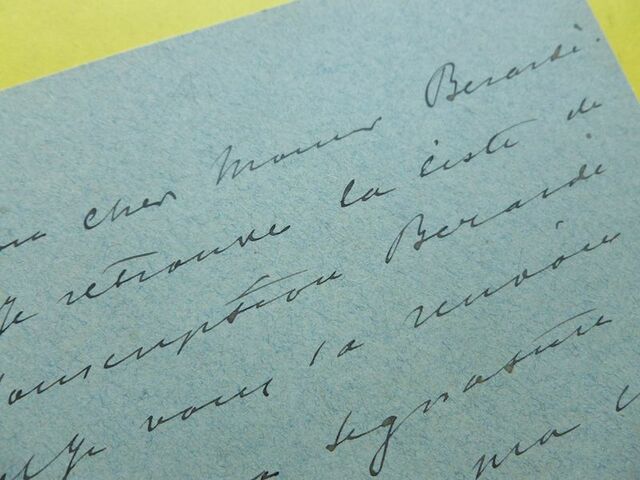 cher Monsieur Berardi.
Je retrouve la liste de
souscription Berardi
Je vous la renvoie
signature
ma